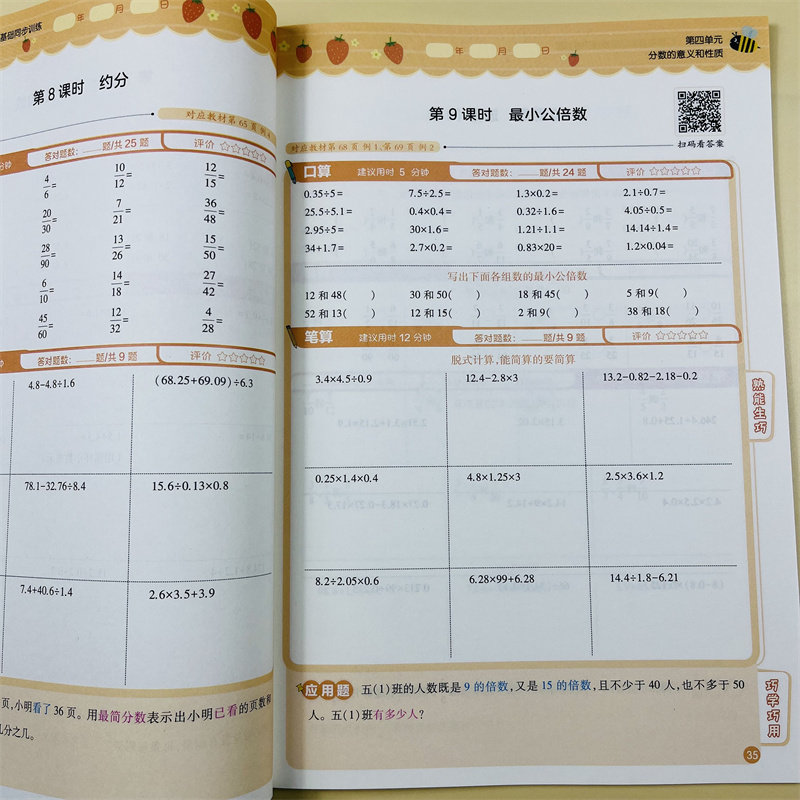 基础同步训练
年 月 日
第8课时 约分
对应教材第65页 例4
分钟 答对题数: 题/共25题 评价
4/6= 10/12= 12/15=
20/30= 7/21= 36/48=
28/90= 13/26= 15/50=
6/10= 14/18= 27/42=
45/60= 12/32= 4/28=
钟 答对题数: 题/共9题 评价
4.8-4.8÷1.6 (68.25+69.09)÷6.3
78.1-32.76÷8.4 15.6÷0.13×0.8
7.4+40.6÷1.4 2.6×3.5+3.9
页,小明看了36页。用最简分数表示出小明已看的页数和
几分之几。
年 月 日
第四单元
分数的意义和性质
第9课时 最小公倍数
扫码看答案
对应教材第68页 例1、第69页 例2
口算 建议用时 5 分钟 答对题数: 题/共24题 评价
0.35÷5= 7.5÷2.5= 1.3×0.2= 2.1÷0.7=
25.5÷5.1= 0.4×0.4= 0.32÷1.6= 4.05÷0.5=
2.95÷5= 30×1.6= 1.21÷1.1= 14.14÷1.4=
34+1.7= 2.7×0.2= 0.83×20= 1.2×0.04=
写出下面各组数的最小公倍数
12和48( ) 30和50( ) 18和45( ) 5和9( )
52和13( ) 12和15( ) 2和9( ) 38和18( )
笔算 建议用时 12 分钟 答对题数: 题/共9题 评价
脱式计算,能简算的要简算
3.4×4.5÷0.9 12.4-2.8×3 13.2-0.82-2.18-0.2
0.25×1.4×0.4 4.8×1.25×3 2.5×3.6×1.2
8.2÷2.05×0.6 6.28×99+6.28 14.4÷1.8-6.21
熟能生巧
应用题 五(1)班的人数既是9的倍数,又是15的倍数,且不少于40人,也不多于50
人。五(1)班有多少人?
巧学巧用
35